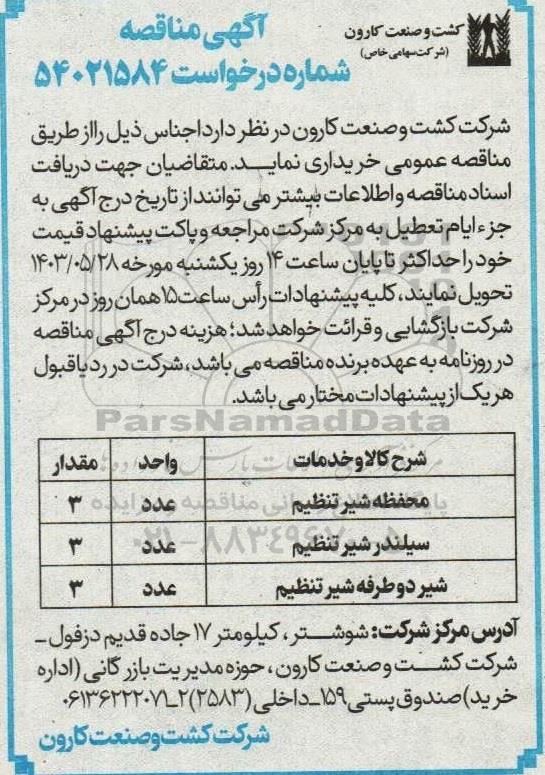 کشت و صنعت کارون
(شرکت سهامی خاص)
آگهی مناقصه
شماره درخواست ۵۴۰۲۱۵۸۴
شرکت کشت و صنعت کارون در نظر دارد اجناس ذیل را از طریق
مناقصه عمومی خریداری نماید. متقاضیان جهت دریافت
اسناد مناقصه و اطلاعات بیشتر می توانند از تاریخ درج آگهی به
جزء ایام تعطیل به مرکز شرکت مراجعه و پاکت پیشنهاد قیمت
خود را حداکثر تا پایان ساعت ۱۴ روز یکشنبه مورخه ۱۴۰۳/۰۵/۲۸
تحویل نمایند، کلیه پیشنهادات رأس ساعت ۱۵ همان روز در مرکز
شرکت بازگشایی و قرائت خواهد شد؛ هزینه درج آگهی مناقصه
در روزنامه به عهده برنده مناقصه می باشد، شرکت در رد یا قبول
هر یک از پیشنهادات مختار می باشد.
ParsNamadData
شرح کالا و خدمات واحد مقدار
محفظه شیر تنظیم عدد ۳
سیلندر شیر تنظیم عدد ۳
شیر دو طرفه شیر تنظیم عدد ۳
۰۲۱-۸۸۳۴۹۶۷۰-۵
آدرس مرکز شرکت: شوشتر، کیلومتر ۱۷ جاده قدیم دزفول -
شرکت کشت و صنعت کارون، حوزه مدیریت بازرگانی (اداره
خرید) صندوق پستی ۱۵۹-داخلی (۲۵۸۳) ۲-۰۶۱۳۶۲۲۲۰۷۱
شرکت کشت و صنعت کارون